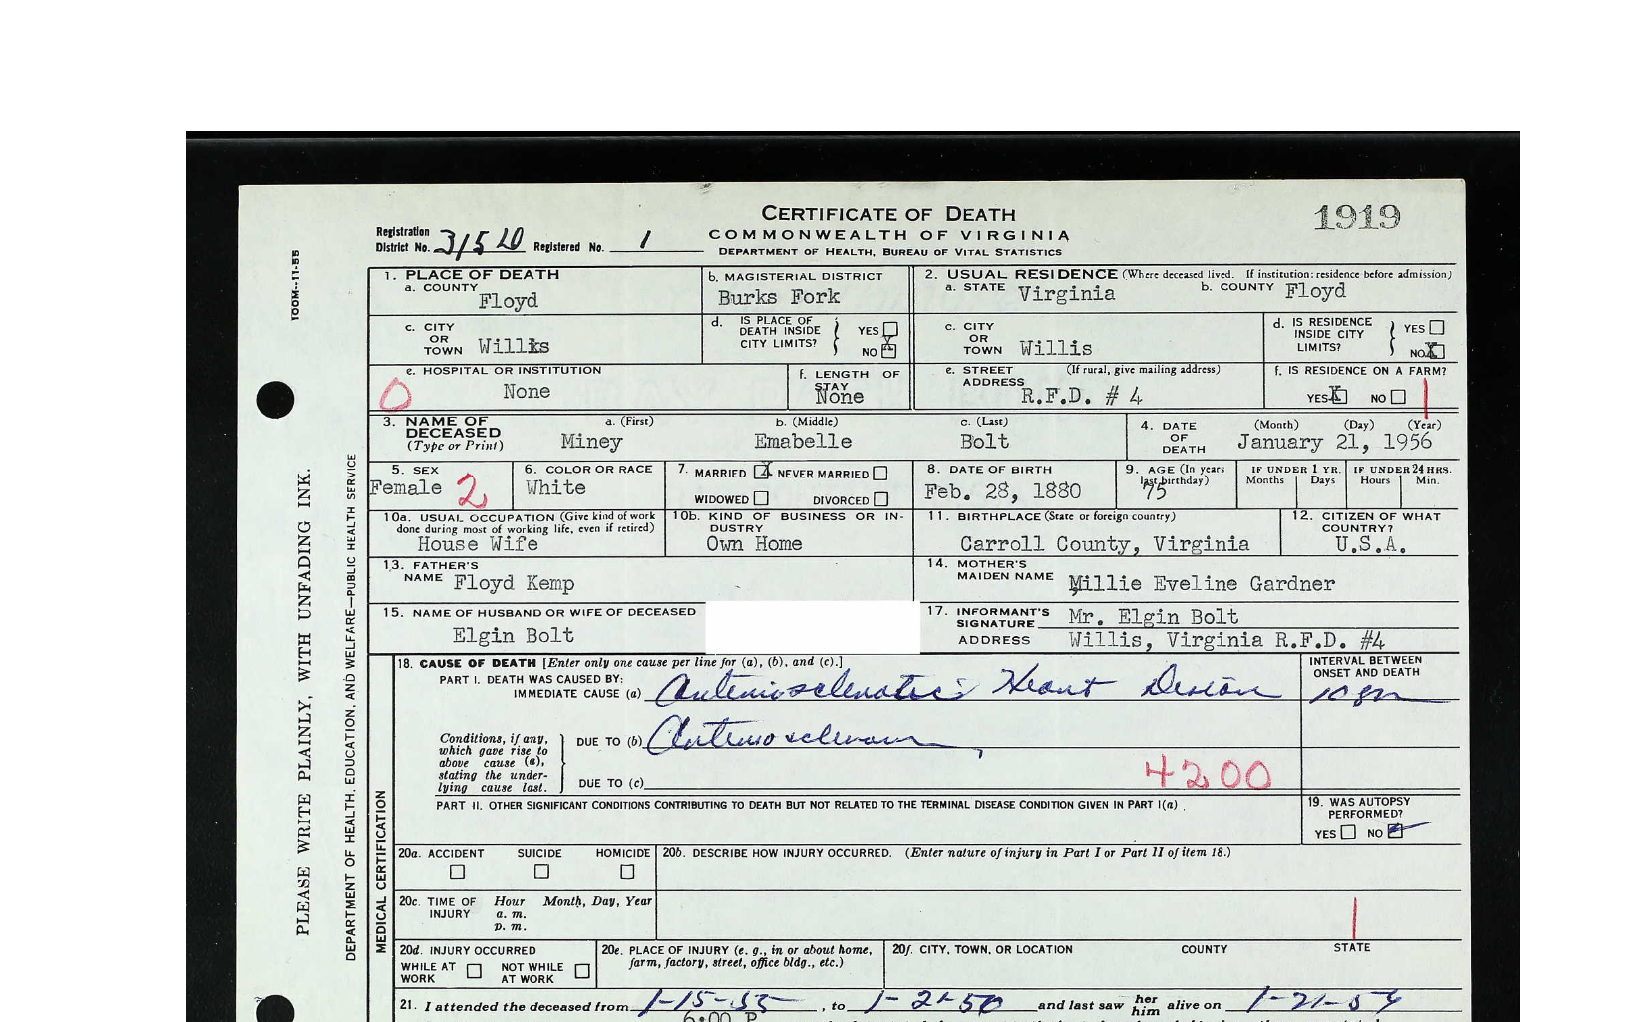 1919
CERTIFICATE OF DEATH
COMMONWEALTH OF VIRGINIA
DEPARTMENT OF HEALTH, BUREAU OF VITAL STATISTICS
Registration District No. 31520 Registered No. 1
100M--11-55
PLEASE WRITE PLAINLY, WITH UNFADING INK.
DEPARTMENT OF HEALTH, EDUCATION, AND WELFARE—PUBLIC HEALTH SERVICE
1. PLACE OF DEATH
a. COUNTY Floyd
b. MAGISTERIAL DISTRICT
Burks Fork
2. USUAL RESIDENCE (Where deceased lived. If institution: residence before admission)
a. STATE Virginia b. COUNTY Floyd
c. CITY OR TOWN Willis
d. IS PLACE OF DEATH INSIDE CITY LIMITS? YES NO X
c. CITY OR TOWN Willis
d. IS RESIDENCE INSIDE CITY LIMITS? YES NO X
e. HOSPITAL OR INSTITUTION
0 None
f. LENGTH OF STAY
None
e. STREET ADDRESS (If rural, give mailing address)
R.F.D. # 4
f. IS RESIDENCE ON A FARM?
YES X NO
3. NAME OF DECEASED (Type or Print)
a. (First) b. (Middle) c. (Last)
Miney Emabelle Bolt
4. DATE OF DEATH (Month) (Day) (Year)
January 21, 1956
5. SEX
Female 2
6. COLOR OR RACE
White
7. MARRIED X NEVER MARRIED
WIDOWED DIVORCED
8. DATE OF BIRTH
Feb. 28, 1880
9. AGE (In years last birthday)
75
IF UNDER 1 YR. Months Days
IF UNDER 24 HRS. Hours Min.
10a. USUAL OCCUPATION (Give kind of work done during most of working life, even if retired)
House Wife
10b. KIND OF BUSINESS OR INDUSTRY
Own Home
11. BIRTHPLACE (State or foreign country)
Carroll County, Virginia
12. CITIZEN OF WHAT COUNTRY?
U.S.A.
13. FATHER'S NAME Floyd Kemp
14. MOTHER'S MAIDEN NAME Millie Eveline Gardner
15. NAME OF HUSBAND OR WIFE OF DECEASED
Elgin Bolt
17. INFORMANT'S SIGNATURE Mr. Elgin Bolt
ADDRESS Willis, Virginia R.F.D. #4
MEDICAL CERTIFICATION
18. CAUSE OF DEATH [Enter only one cause per line for (a), (b), and (c).]
PART I. DEATH WAS CAUSED BY:
IMMEDIATE CAUSE (a) Arteriosclerotic Heart Disease
INTERVAL BETWEEN ONSET AND DEATH
Conditions, if any, which gave rise to above cause (a), stating the underlying cause last.
DUE TO (b) Arteriosclerosis
DUE TO (c)
4200
PART II. OTHER SIGNIFICANT CONDITIONS CONTRIBUTING TO DEATH BUT NOT RELATED TO THE TERMINAL DISEASE CONDITION GIVEN IN PART I(a)
19. WAS AUTOPSY PERFORMED?
YES NO
20a. ACCIDENT SUICIDE HOMICIDE
20b. DESCRIBE HOW INJURY OCCURRED. (Enter nature of injury in Part I or Part II of item 18.)
20c. TIME OF INJURY Hour Month, Day, Year
a. m.
p. m.
20d. INJURY OCCURRED
WHILE AT WORK NOT WHILE AT WORK
20e. PLACE OF INJURY (e. g., in or about home, farm, factory, street, office bldg., etc.)
20f. CITY, TOWN, OR LOCATION COUNTY STATE
21. I attended the deceased from , to and last saw her him alive on